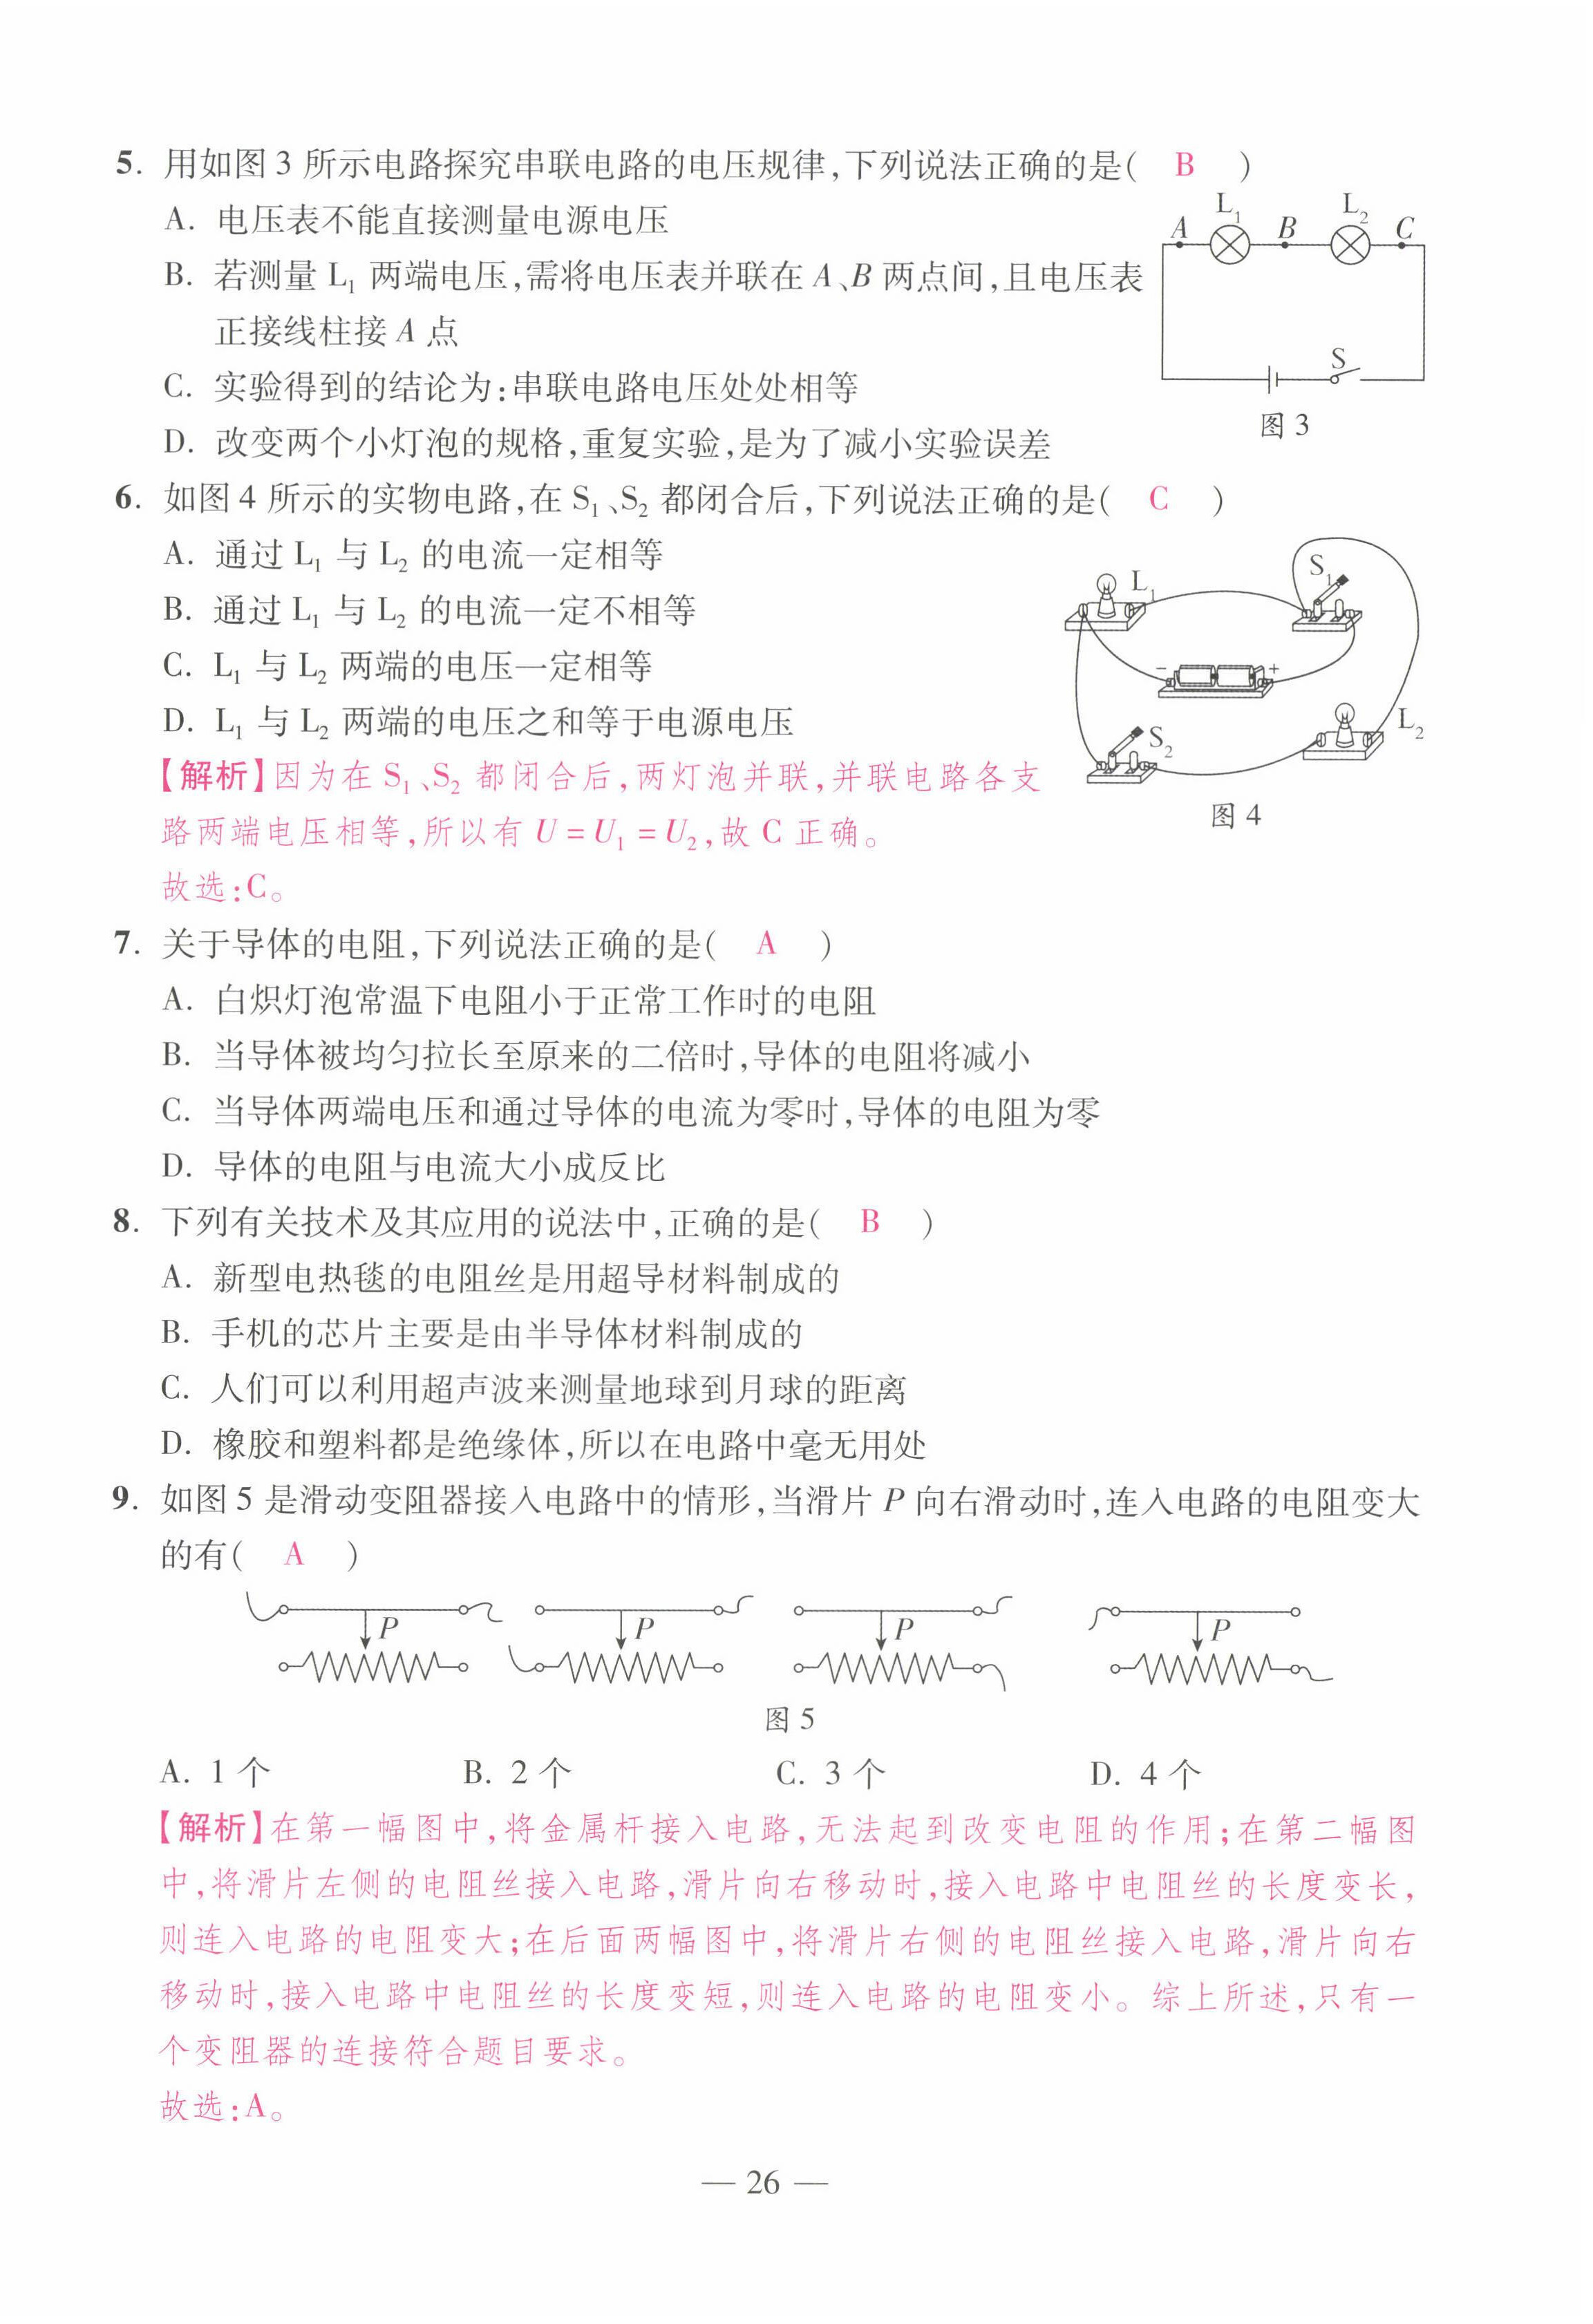 5. 用如图 3 所示电路探究串联电路的电压规律,下列说法正确的是( B )
A. 电压表不能直接测量电源电压
B. 若测量 L₁ 两端电压,需将电压表并联在 A、B 两点间,且电压表
正接线柱接 A 点
C. 实验得到的结论为:串联电路电压处处相等
D. 改变两个小灯泡的规格,重复实验,是为了减小实验误差
L₁ L₂
A B C
S
图 3
6. 如图 4 所示的实物电路,在 S₁、S₂ 都闭合后,下列说法正确的是( C )
A. 通过 L₁ 与 L₂ 的电流一定相等
B. 通过 L₁ 与 L₂ 的电流一定不相等
C. L₁ 与 L₂ 两端的电压一定相等
D. L₁ 与 L₂ 两端的电压之和等于电源电压
L₁ S₁
- +
S₂ L₂
图 4
【解析】因为在 S₁、S₂ 都闭合后,两灯泡并联,并联电路各支
路两端电压相等,所以有 U = U₁ = U₂,故 C 正确。
故选:C。
7. 关于导体的电阻,下列说法正确的是( A )
A. 白炽灯泡常温下电阻小于正常工作时的电阻
B. 当导体被均匀拉长至原来的二倍时,导体的电阻将减小
C. 当导体两端电压和通过导体的电流为零时,导体的电阻为零
D. 导体的电阻与电流大小成反比
8. 下列有关技术及其应用的说法中,正确的是( B )
A. 新型电热毯的电阻丝是用超导材料制成的
B. 手机的芯片主要是由半导体材料制成的
C. 人们可以利用超声波来测量地球到月球的距离
D. 橡胶和塑料都是绝缘体,所以在电路中毫无用处
9. 如图 5 是滑动变阻器接入电路中的情形,当滑片 P 向右滑动时,连入电路的电阻变大
的有( A )
P P P P
图 5
A. 1 个 B. 2 个 C. 3 个 D. 4 个
【解析】在第一幅图中,将金属杆接入电路,无法起到改变电阻的作用;在第二幅图
中,将滑片左侧的电阻丝接入电路,滑片向右移动时,接入电路中电阻丝的长度变长,
则连入电路的电阻变大;在后面两幅图中,将滑片右侧的电阻丝接入电路,滑片向右
移动时,接入电路中电阻丝的长度变短,则连入电路的电阻变小。综上所述,只有一
个变阻器的连接符合题目要求。
故选:A。
— 26 —